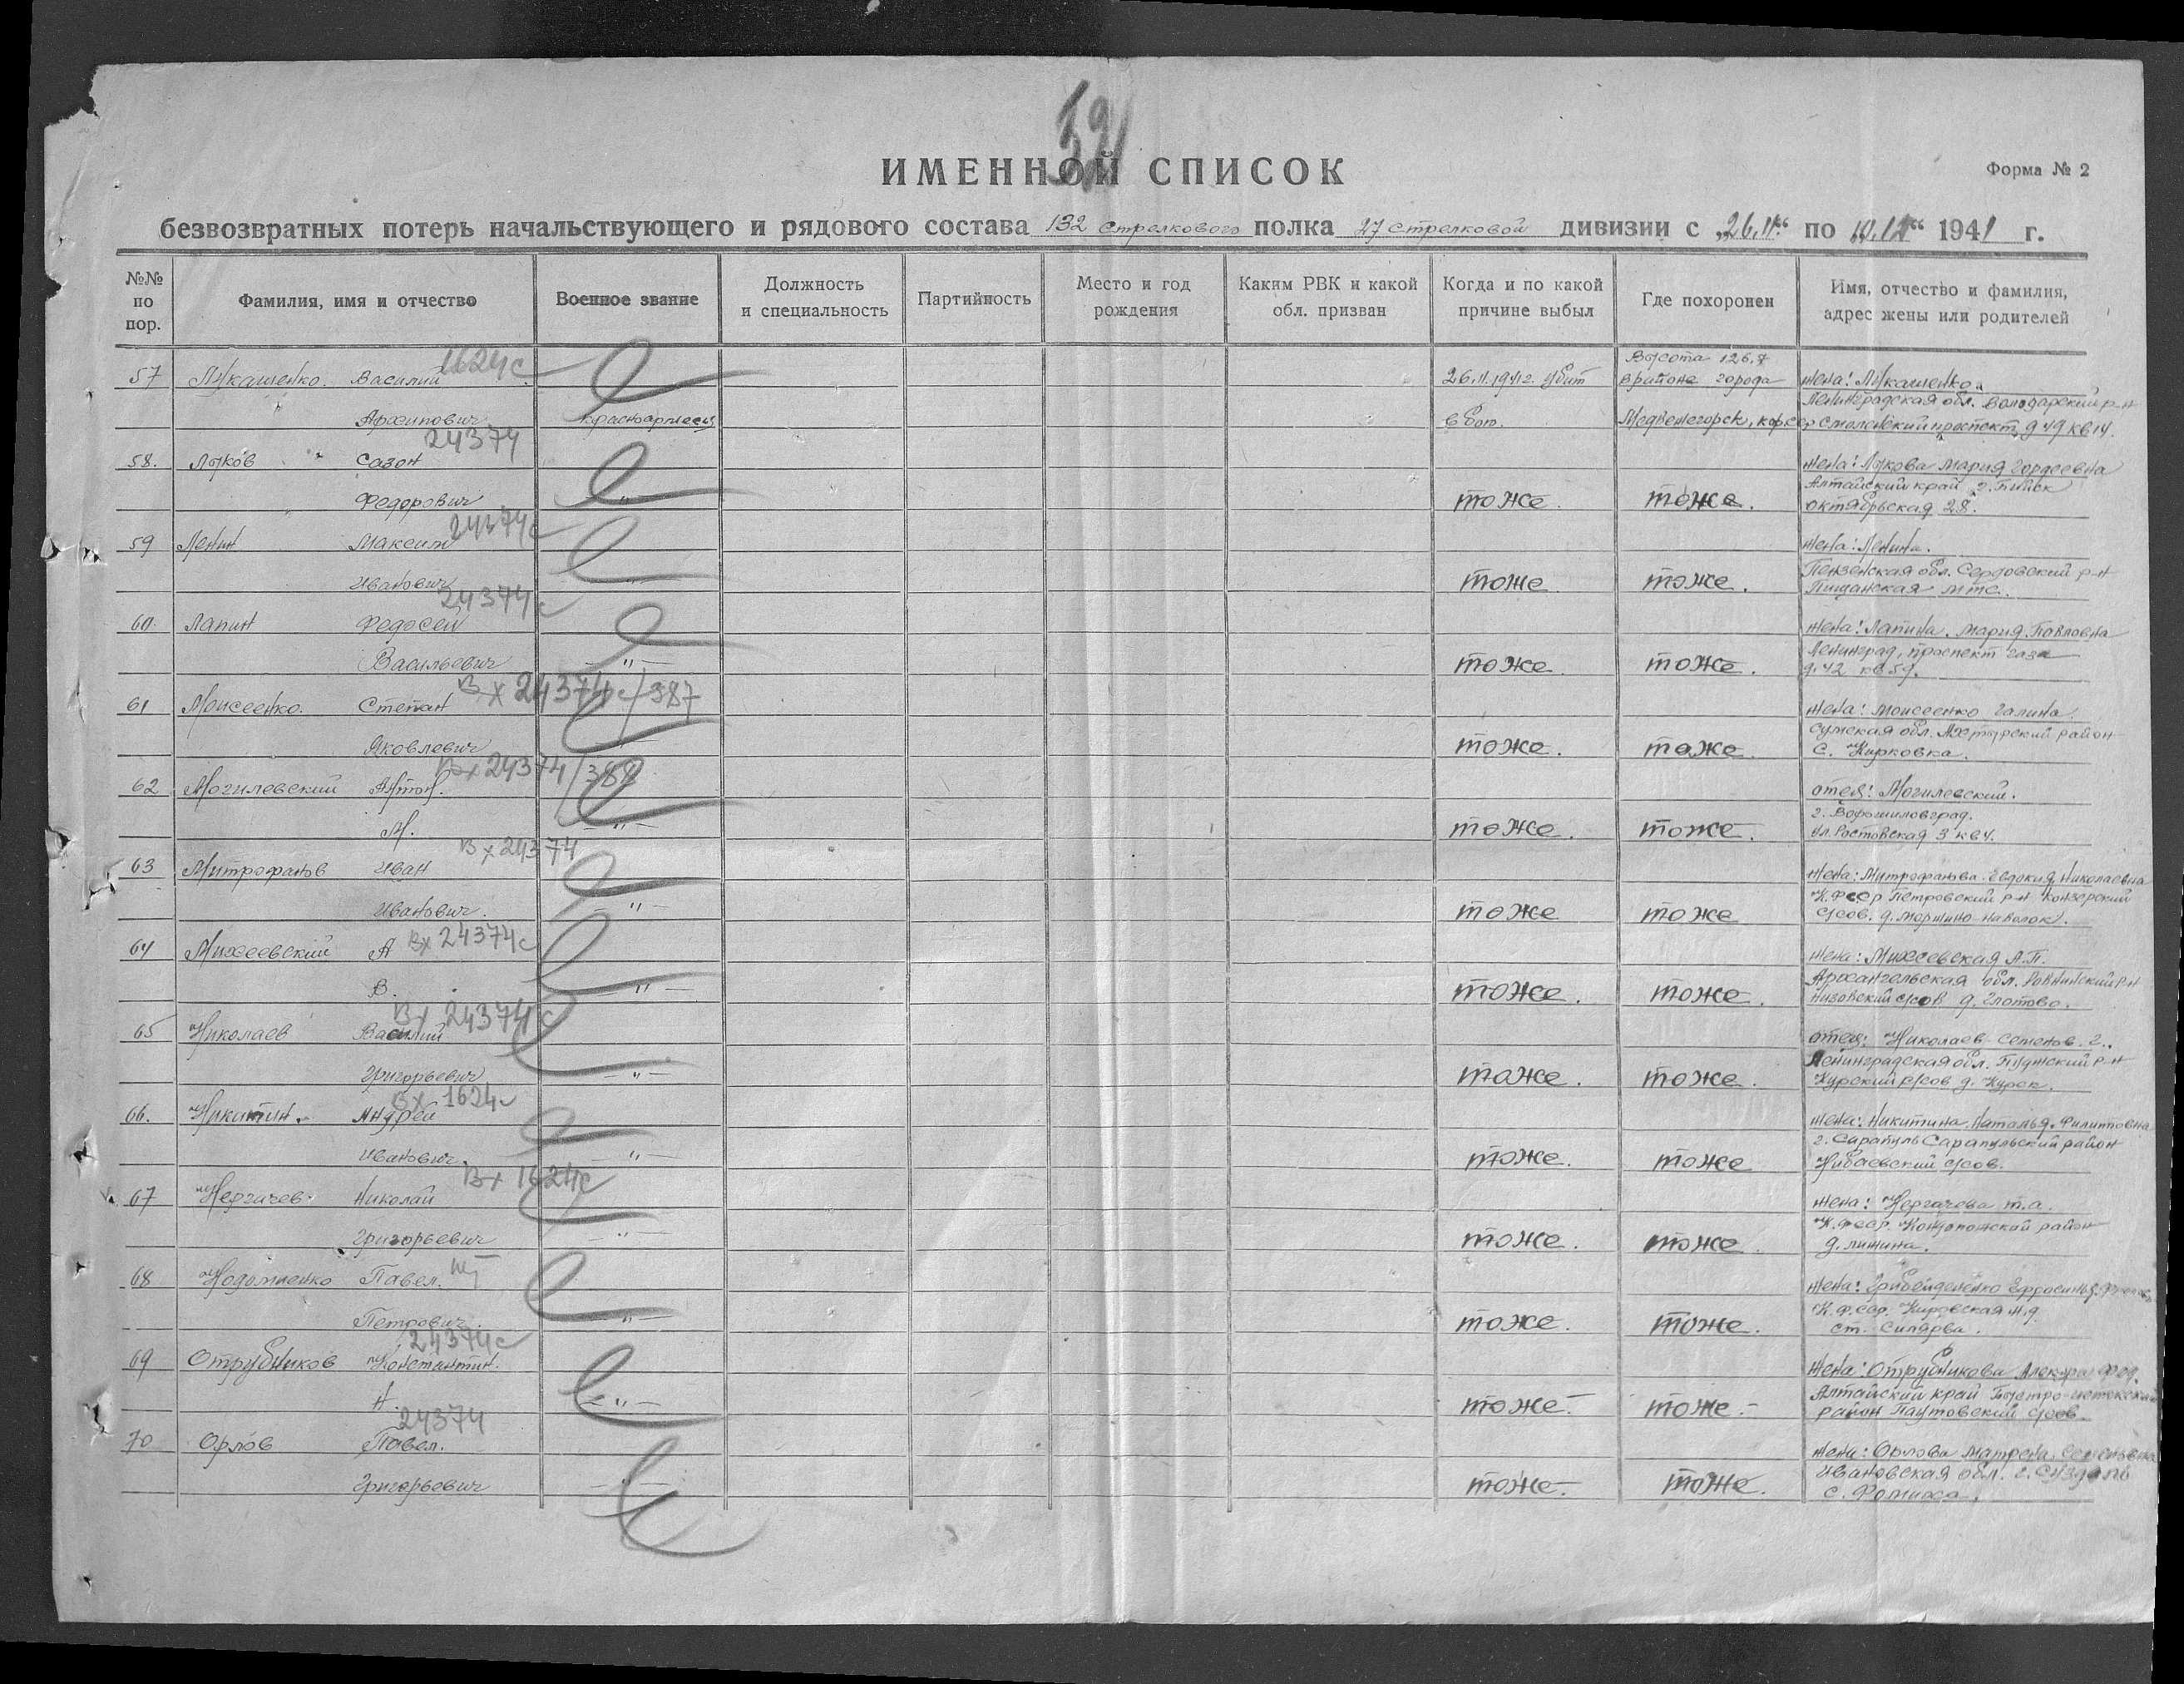 59
ИМЕННОЙ СПИСОК
Форма № 2
безвозвратных потерь начальствующего и рядового состава 132 стрелкового полка 27 стрелковой дивизии с „26.11.“ по 10.12“ 1941 г.
№№ по пор. Фамилия, имя и отчество Военное звание Должность и специальность Партийность Место и год рождения Каким РВК и какой обл. призван Когда и по какой причине выбыл Где похоронен Имя, отчество и фамилия, адрес жены или родителей
1624с
Высота 126,7
57 Лукашенко. Василий 26.11.1941г. убит в районе города жена: Лукашенко.
Ленинградская обл. Володарский р-н
Архипович красноармеец в бою. Медвежегорск, кфсср Смоленский проспект д 49 кв 14.
24374
58. Лужков Сазон жена: Мария Гордеевна
Алтайский край г. Бийск
Федорович —"— тоже. тоже. Октябрьская 28.
24374с
59 Ленин Максим жена: Ленина.
Пензенская обл. Сердовский р-н
Иванович —"— тоже тоже. мтс.
24374с
60. Лапин Федосей жена: Лапина. Мария. Павловна
Ленинград, проспект газа
Васильевич —"— тоже тоже. д. 42 кв 59.
Вх 24374с/387
61 Моисеенко. Степан жена: Моисеенко Галина
Сумская обл. район
Яковлевич —"— тоже. тоже с. Кирковка.
Вх 24374/388
62 Могилевский Антон. отец: Могилевский.
г. Ворошиловград.
М. —"— тоже. тоже. ул. Ростовская 3 кв 4.
Вх 24374
63 Митрофанов Иван жена: Митрофанова Евдокия Николаевна
К.Фсср Петровский р-н
Иванович. —"— тоже тоже с/сов. д.
Вх 24374с
64 Михеевский А жена: Михеевская А.П.
Архангельская обл. р-н
В. —"— тоже. тоже. с/сов д. Глотово.
Вх 24374с
65 Николаев Василий отец: Николаев Г.
Ленинградская обл. р-н
Григорьевич —"— тоже. тоже. Курский с/сов д. Курск.
Вх 1624с
66. Никитин. Андрей жена: Никитина Наталья Филипповна
г. Сарапуль Сарапульский район
Иванович. —"— тоже. тоже с/сов.
Вх 1624с
67 Нергачев. Николай жена: Нергачева т.а.
К.фсср. Кондопожский район
Григорьевич —"— тоже. тоже. д.
68 Павел. жена:
К.фсср. Кировская ж.д.
Петрович. —"— тоже. тоже. ст.
24374с
69 Отрубников Константин. жена: Отрубникова
Алтайский край
Н. —"— тоже. тоже. район Паутовский с/сов.
24374
70 Орлов Павел. жена: Орлова Матрена
Ивановская обл. г. Суздаль
Григорьевич —"— тоже. тоже. с.